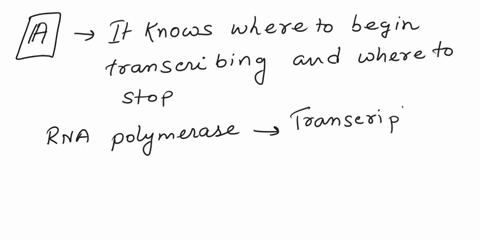 A → It knows where to begin
transcribing and where to
stop
RNA polymerase → Transcrip